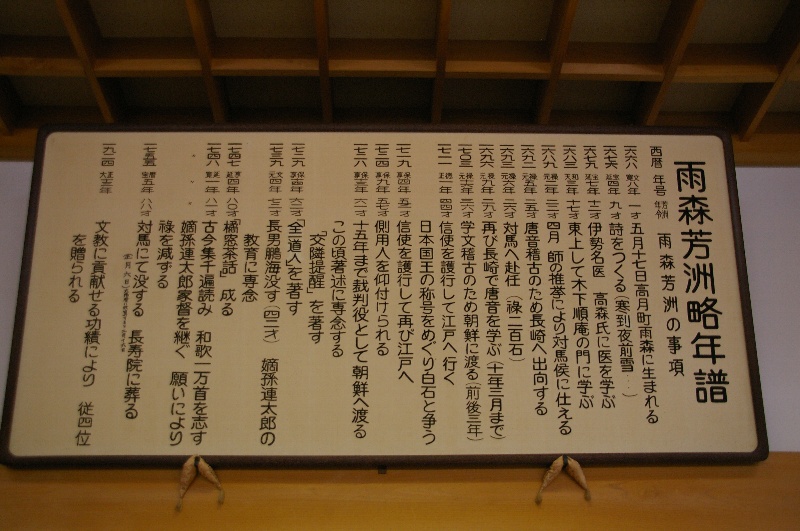 雨森芳洲略年譜
西暦 年号 芳洲年令 雨森芳洲の事項
一六六八 寛文八年 一才 五月十七日高月町雨森に生まれる
一六七六 延宝四年 九才 詩をつくる（寒到夜前雪…）
一六七九 延宝七年 十二才 伊勢名医 高森氏に医を学ぶ
一六八三 天和三年 十七才 東上して木下順庵の門に学ぶ
一六八九 元禄二年 二二才 四月 師の推挙により対馬侯に仕える
一六九二 元禄五年 二五才 唐音稽古のため長崎へ出向する
一六九三 元禄六年 二六才 対馬へ赴任（禄二百石）
一六九六 元禄九年 二九才 再び長崎で唐音を学ぶ（十一年三月まで）
一七〇三 元禄十六年 三六才 学文稽古のため朝鮮に渡る（前後三年）
一七一一 正徳一年 四四才 信使を護行して江戸へ行く
日本国王の称号をめぐり白石と争う
一七一九 享保四年 五二才 信使を護行して再び江戸へ
一七二四 享保九年 五七才 側用人を仰付けられる
一七二八 享保十三年 六一才 十五年まで裁判役として朝鮮へ渡る
この頃著述に専念する
「交隣提醒」を著す
一七二九 享保十四年 六二才 「全一道人」を著す
一七三九 元文四年 七二才 長男鵬海没す（四二才） 嫡孫連太郎の
教育に専念
一七四七 延享四年 八〇才 「橘窓茶話」成る
一七四八 延享一年 八一才 古今集千遍読み 和歌一万首を志す
嫡孫連太郎家督を継ぐ 願いにより
禄を減ずる
一七五五 宝暦五年 八八才 対馬にて没する 長寿院に葬る
一九二四 大正十三年 文教に貢献せる功績により 従四位
を贈られる